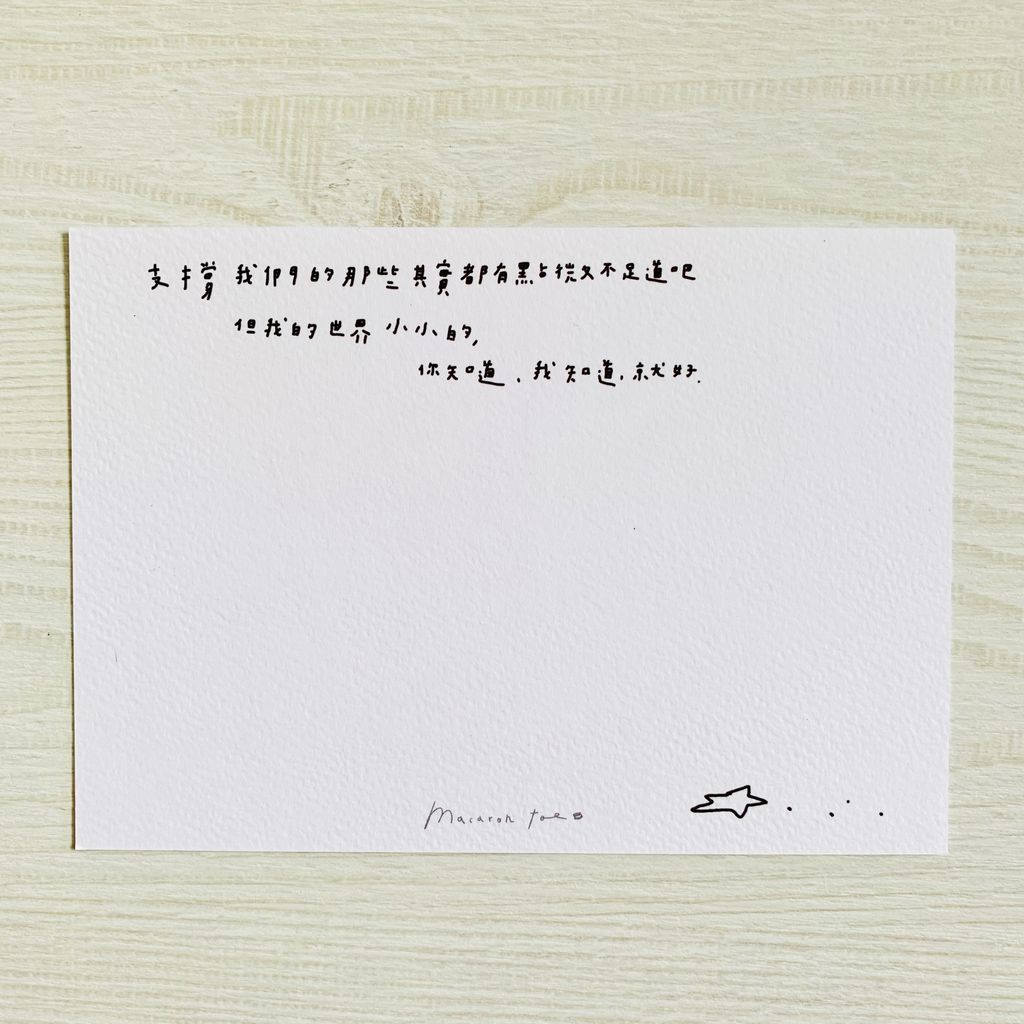 支撐我們的那些其實都有點微不足道吧
但我的世界小小的,
你知道、我知道,就好.
Macaron toe